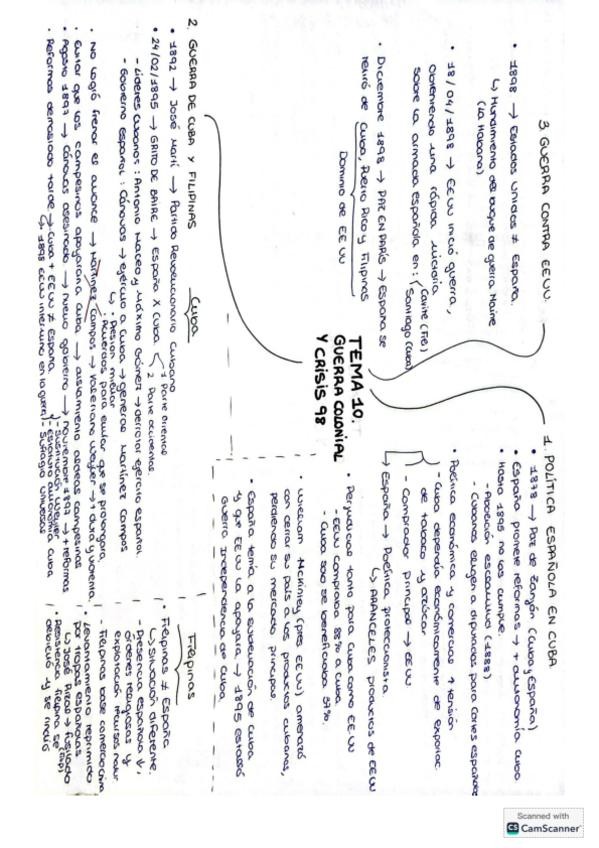 TEMA 10.
GUERRA COLONIAL
Y CRISIS 98
1. POLÍTICA ESPAÑOLA EN CUBA
• 1878 → Paz de Zanjón (Cuba y España)
• España promete reformas → + autonomía Cuba
• Hasta 1895 no las cumple.
- Abolición esclavitud (1888)
- Cubanos eligen a diputados para Cortes españolas
• Política económica y comercial ↑ tensión
- Cuba dependía económicamente de exportac.
de tabaco y azúcar
- Comprador principal → EEUU
→ España → Política proteccionista
↳ ARANCELES productos de EEUU
• Perjudicial tanto para Cuba como EEUU
- EEUU compraba 88% a Cuba
Cuba solo se beneficiaba 37%.
• William McKinley (pres EEUU) amenazó
con cerrar su país a los productos cubanos,
perdiendo su mercado principal.
• España temía a la sublevación de Cuba
y que EEUU la apoyara → 1895 estalló
Guerra Independencia de Cuba.
2. GUERRA DE CUBA Y FILIPINAS
Cuba
• 1892 → José Martí → Partido Revolucionario Cubano
• 24/02/1895 → GRITO DE BAIRE → España X Cuba
1 Parte oriental
2 Parte occidental
- Líderes cubanos: Antonio Maceo y Máximo Gómez → derrotar ejército español
- Gobierno español: Cánovas → ejército a Cuba → general Martínez Campos
↳ • Presión militar
• Acuerdos para evitar que se prolongara.
• No logró frenar el avance → Martínez Campos → Valeriano Weyler → + dura y violenta.
• Evitar que los campesinos apoyaran a Cuba → aislamiento aldeas campesinas
• Agosto 1897 → Cánovas asesinado → nuevo gobierno → noviembre 1897 → + reformas
- Sustitución Weyler
- Estatuto autonomía Cuba
- Sufragio universal
• Reformas demasiado tarde → Cuba + EEUU ≠ España.
↳ 1898 EEUU interviene en la guerra
Filipinas
• Filipinas ≠ España
↳ Situación diferente.
- Presencia española ↓,
órdenes religiosas y
explotación recursos natur
- Filipinas base comercio china
• Levantamiento reprimido
por tropas españolas
↳ José Rizal → fusilado
• Resistencia filipina se
debilitó y se rindió
3. GUERRA CONTRA EEUU.
• 1898 → Estados Unidos ≠ España.
↳ Hundimiento del buque de guerra Maine
(La Habana)
• 18/04/1898 → EEUU inició guerra,
obteniendo una rápida victoria
sobre la armada española en:
Cavite (Fil)
Santiago (Cuba)
• Diciembre 1898 → PAZ EN PARÍS → España se
retiró de Cuba, Puerto Rico y Filipinas
Dominio de EEUU
Scanned with
CS CamScanner